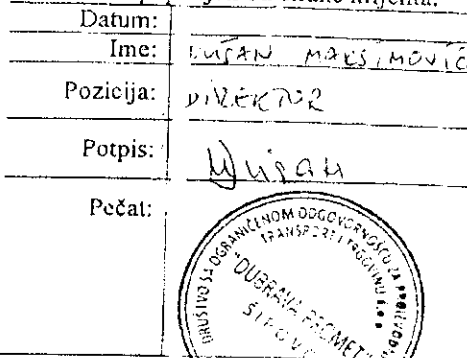 Datum:
Ime: DUŠAN MAKSIMOVIĆ
Pozicija: DIREKTOR
Potpis: Dušan
Pečat:
DRUŠTVO SA OGRANIČENOM ODGOVORNOŠĆU ZA PROIZVOD
TRANSPORT I TRGOVINU
"DUBRAVA PROMET"
ŠIPOVO